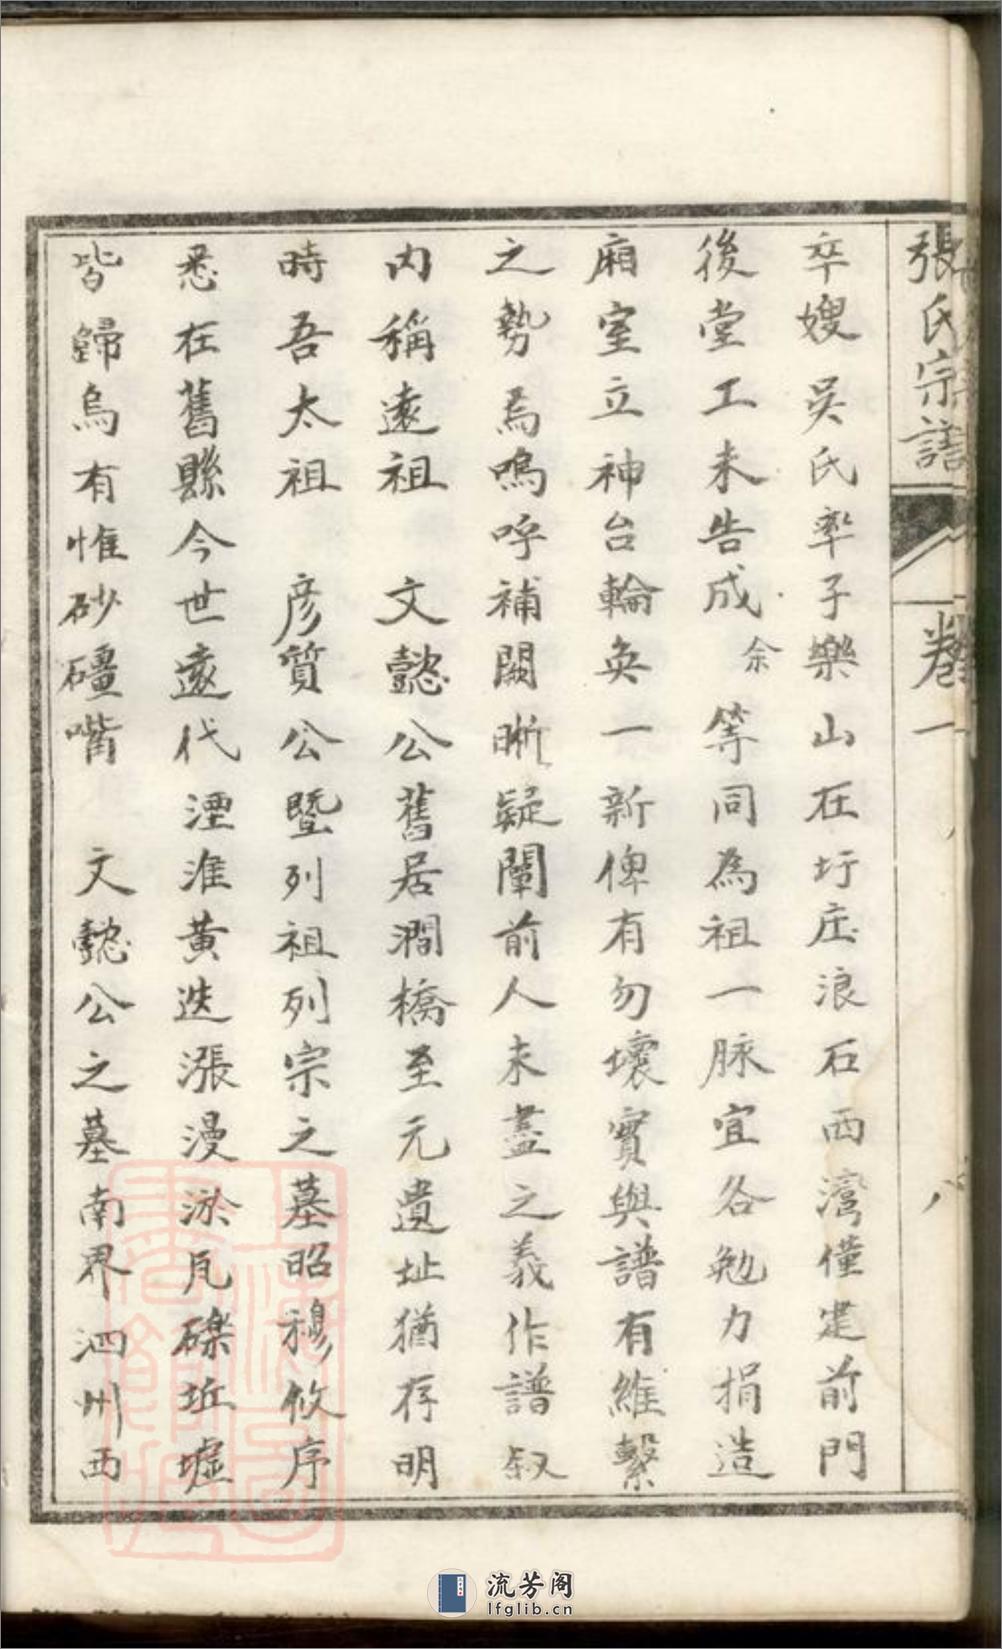 張氏宗譜 卷一 八
卒嫂吳氏率子樂山在圩庄浪石西灣僅建前門
後堂工未告成余等同為祖一脉宜各勉力捐造
廂室立神台輪奐一新俾有勿壞實與譜有維繫
之勢焉嗚呼補闕晰疑闡前人未盡之義作譜叙
內稱遠祖 文懿公舊居澗橋至元遺址猶存明
時吾太祖 彦質公暨列祖列宗之墓昭穆攸序
悉在舊縣今世遠代湮淮黃迭漲漫淤瓦礫坵墟
皆歸烏有惟砂礓嘴 文懿公之墓南界泗州西
流芳阁
lfglib.cn